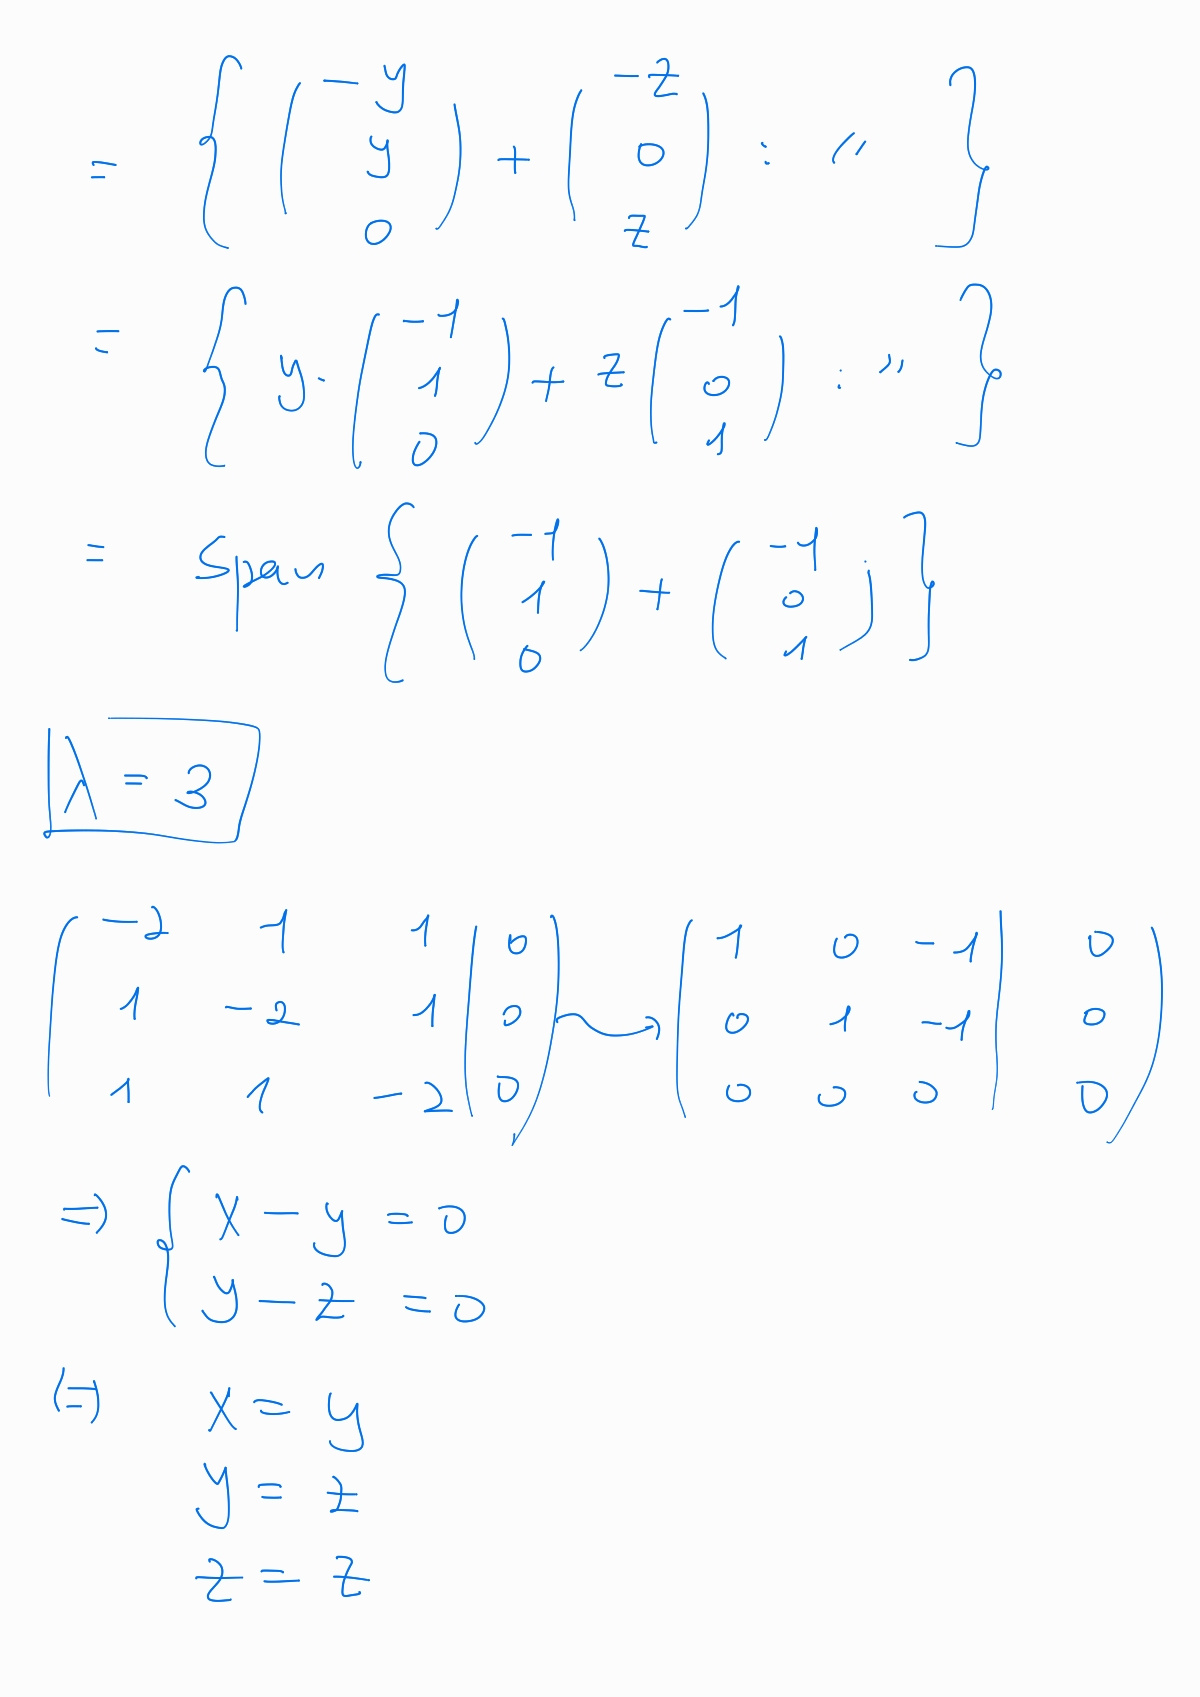 = { ( -y y 0 ) + ( -z 0 z ) : " }
= { y · ( -1 1 0 ) + z ( -1 0 1 ) : " }
= Span { ( -1 1 0 ) + ( -1 0 1 ) }
λ = 3
( -2 1 1 | 0 ) ⇝ ( 1 0 -1 | 0 )
( 1 -2 1 | 0 ) ( 0 1 -1 | 0 )
( 1 1 -2 | 0 ) ( 0 0 0 | 0 )
⇒ { x - y = 0
y - z = 0
(=) x = y
y = z
z = z